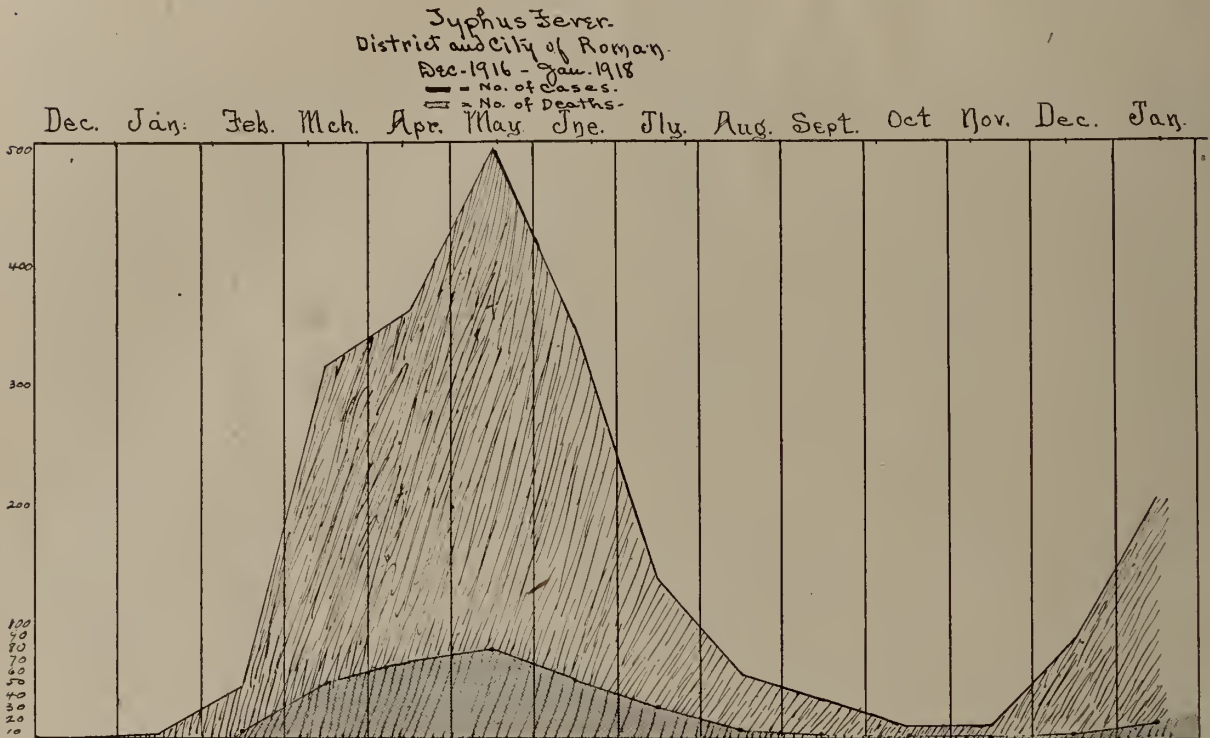 Typhus Fever.
District and City of Roman.
Dec. 1916 - Jan. 1918
= No. of Cases.
= No. of Deaths.
Dec. Jan. Feb. Mch. Apr. May Jne. Jly. Aug. Sept. Oct Nov. Dec. Jan.
500
400
300
200
100
90
80
70
60
50
40
30
20
10